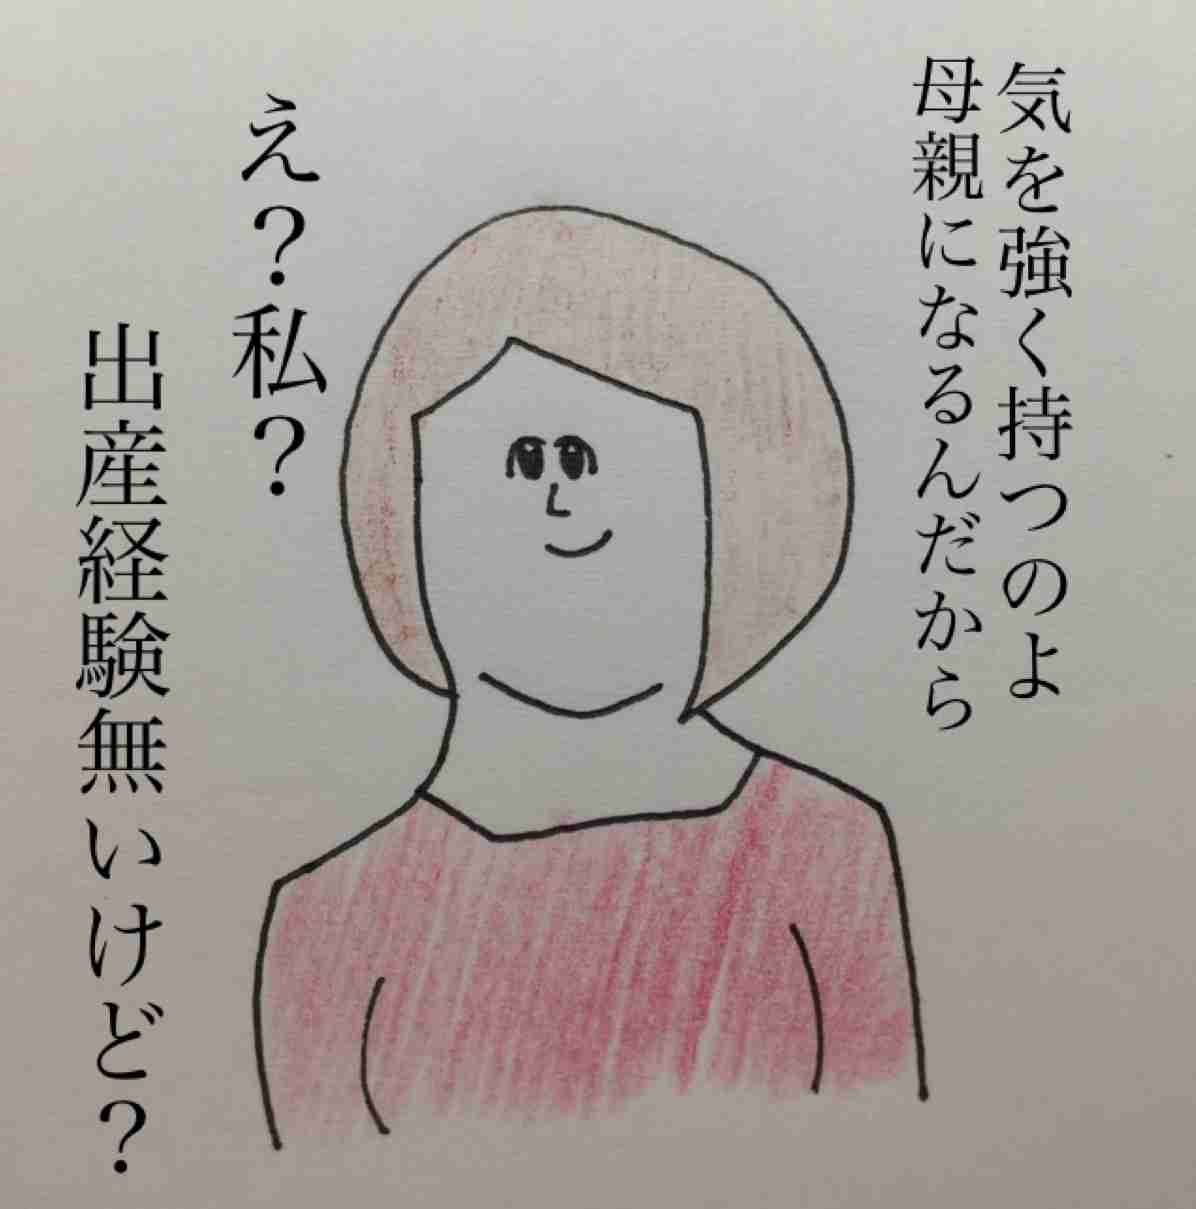 気を強く持つのよ
母親になるんだから
え？私？
出産経験無いけど？